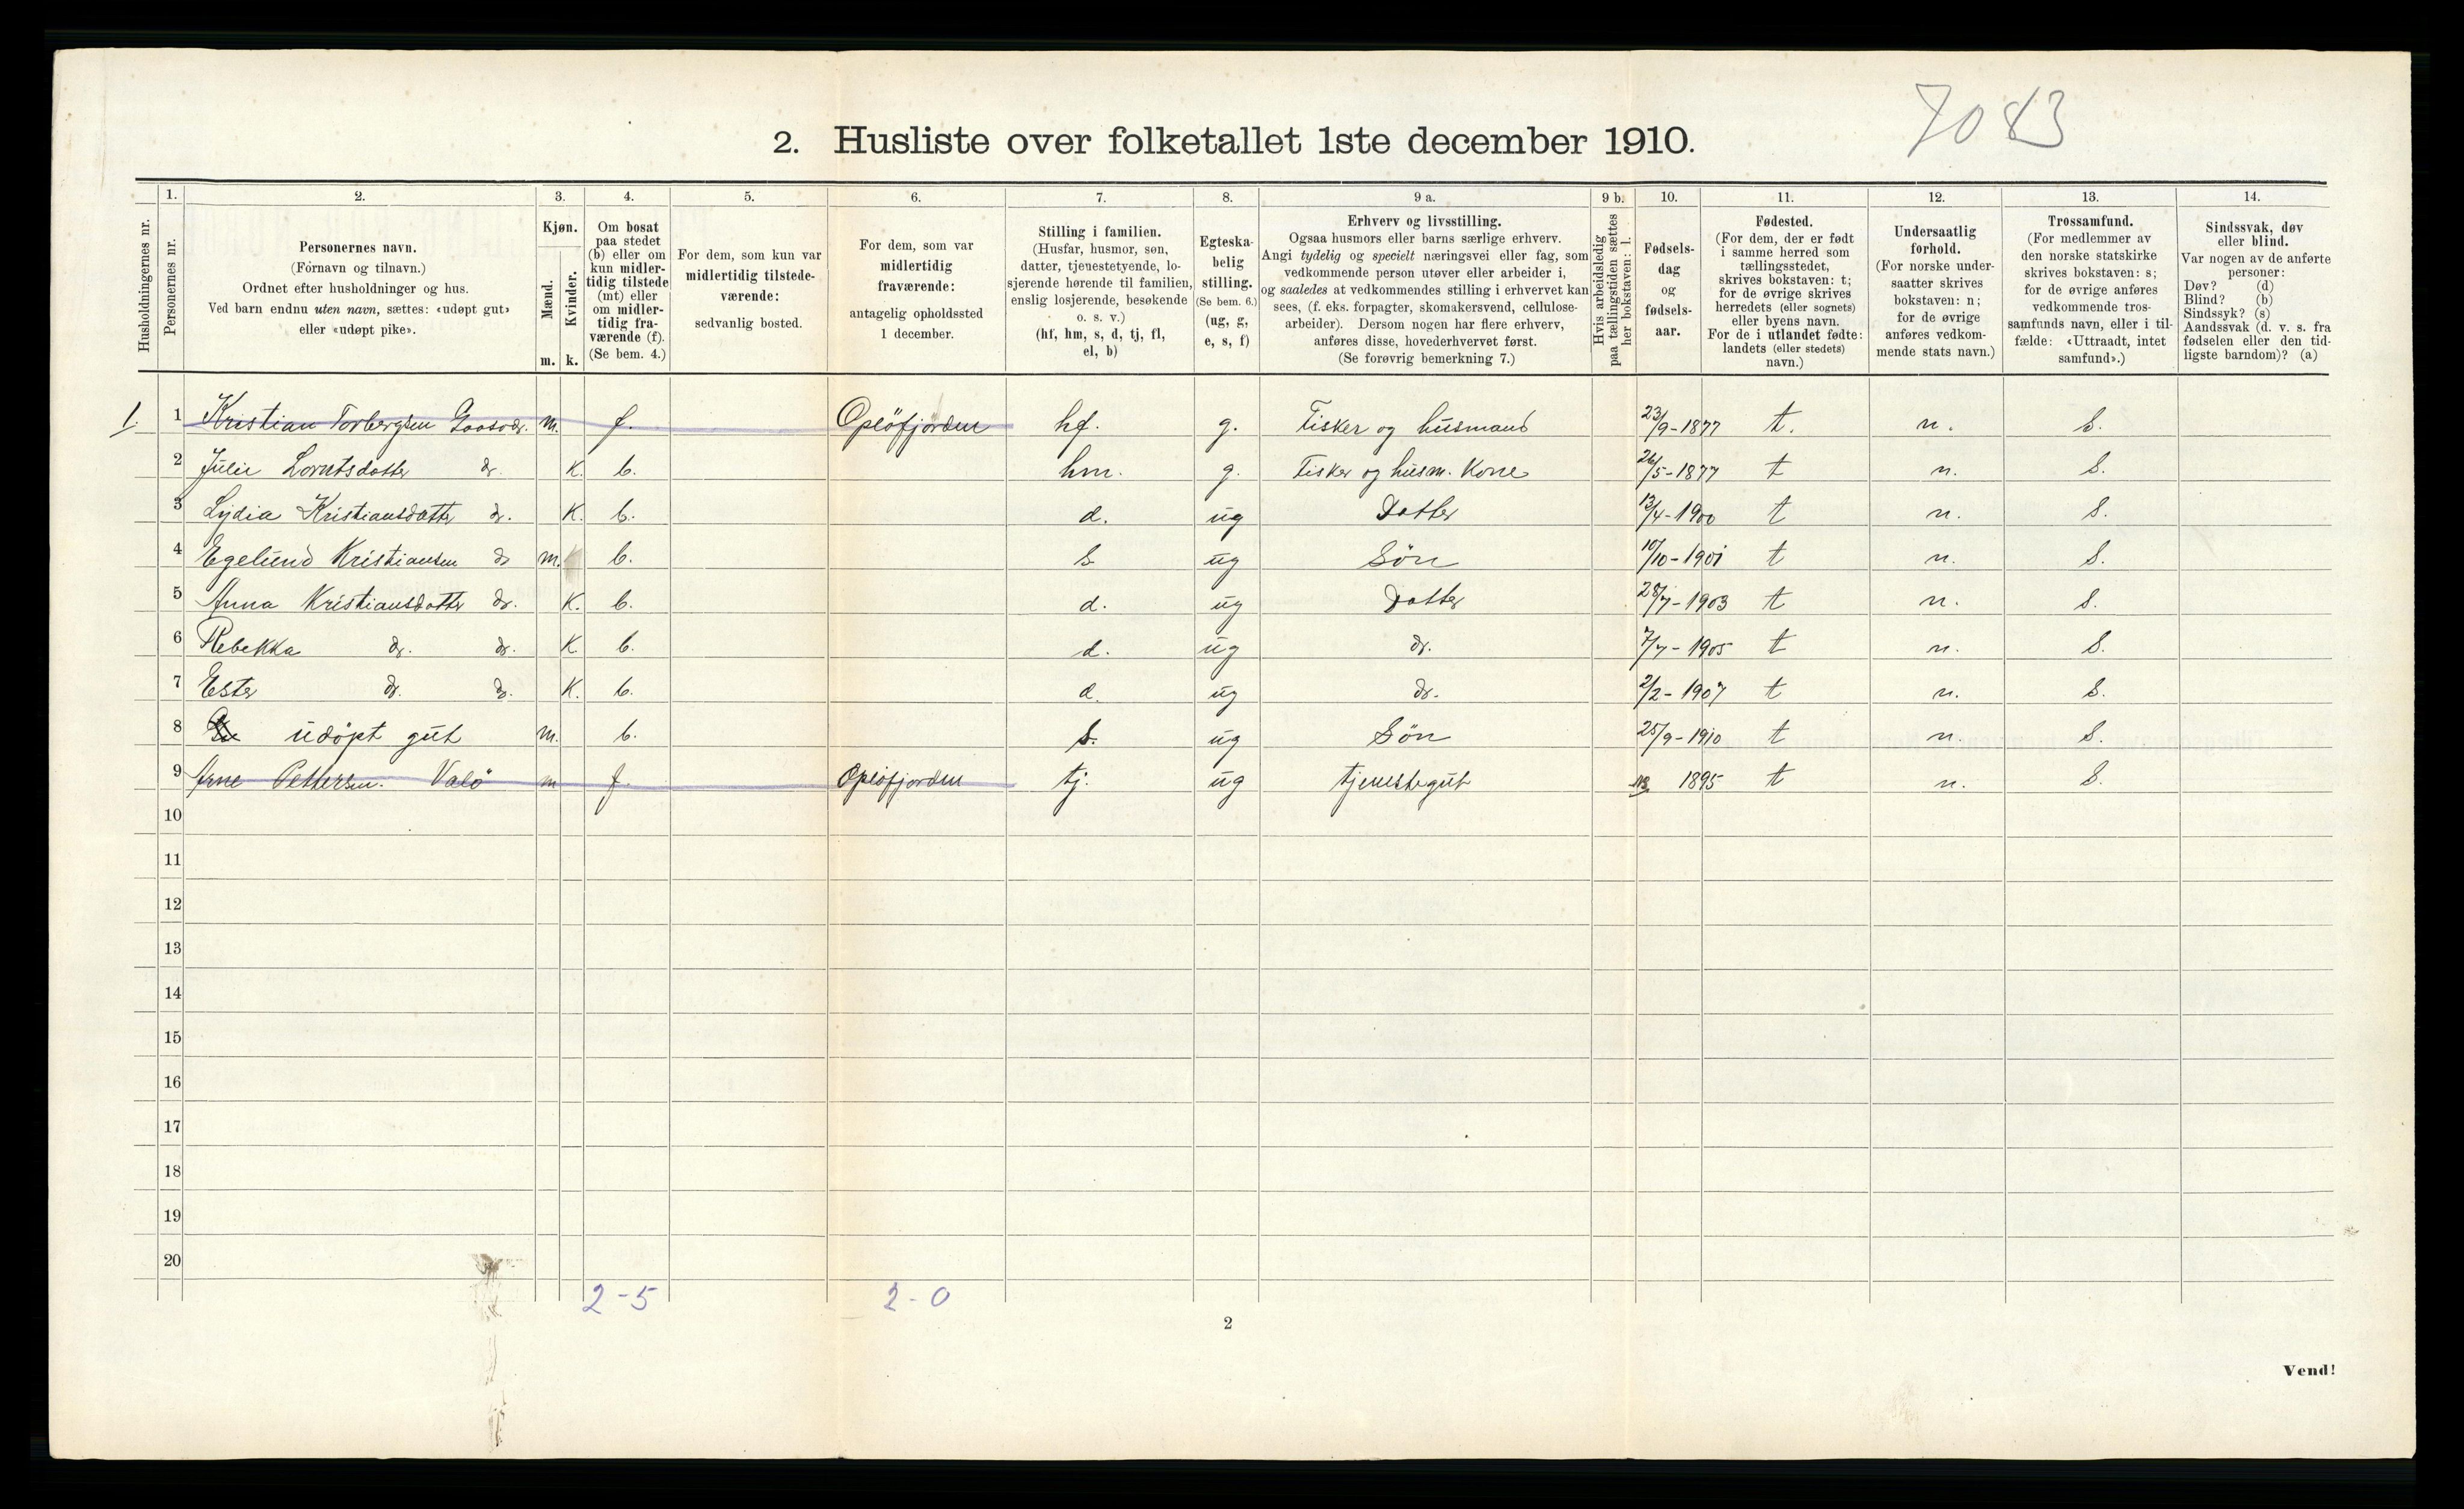 7083
2. Husliste over folketallet 1ste december 1910.
Husholdningernes nr.
1.
Personernes nr.
2.
Personernes navn.
(Fornavn og tilnavn.)
Ordnet efter husholdninger og hus.
Ved barn endnu uten navn, sættes: «udøpt gut»
eller «udøpt pike».
3.
Kjøn.
Mænd.
Kvinder.
m. k.
4.
Om bosat
paa stedet
(b) eller om
kun midler-
tidig tilstede
(mt) eller
om midler-
tidig fra-
værende (f).
(Se bem. 4.)
5.
For dem, som kun var
midlertidig tilstede-
værende:
sedvanlig bosted.
6.
For dem, som var
midlertidig
fraværende:
antagelig opholdssted
1 december.
7.
Stilling i familien.
(Husfar, husmor, søn,
datter, tjenestetyende, lo-
sjerende hørende til familien,
enslig losjerende, besøkende
o. s. v.)
(hf, hm, s, d, tj, fl,
el, b)
8.
Egteska-
belig
stilling.
(Se bem. 6.)
(ug, g,
e, s, f)
9 a.
Erhverv og livsstilling.
Ogsaa husmors eller barns særlige erhverv.
Angi tydelig og specielt næringsvei eller fag, som
vedkommende person utøver eller arbeider i,
og saaledes at vedkommendes stilling i erhvervet kan
sees, (f. eks. forpagter, skomakersvend, cellulose-
arbeider). Dersom nogen har flere erhverv,
anføres disse, hovederhvervet først.
(Se forøvrig bemerkning 7.)
9 b.
Hvis arbeidsledig
paa tællingstiden sættes
her bokstaven: l.
10.
Fødsels-
dag
og
fødsels-
aar.
11.
Fødested.
(For dem, der er født
i samme herred som
tællingsstedet,
skrives bokstaven: t;
for de øvrige skrives
herredets (eller sognets)
eller byens navn.
For de i utlandet fødte:
landets (eller stedets)
navn.)
12.
Undersaatlig
forhold.
(For norske under-
saatter skrives
bokstaven: n;
for de øvrige
anføres vedkom-
mende stats navn.)
13.
Trossamfund.
(For medlemmer av
den norske statskirke
skrives bokstaven: s;
for de øvrige anføres
vedkommende tros-
samfunds navn, eller i til-
fælde: «Uttraadt, intet
samfund».)
14.
Sindssvak, døv
eller blind.
Var nogen av de anførte
personer:
Døv? (d)
Blind? (b)
Sindssyk? (s)
Aandssvak (d. v. s. fra
fødselen eller den tid-
ligste barndom)? (a)
1. 1 Kristian Torbergsen m. f. Oplöfjorden hf. g. Fisker og husmand 23/9-1877 t. n. S.
2 Julie Lorntsdatter do. K. b. hm. g. Fisker og husm. Kone 26/5-1877 t n. S.
3 Lydia Kristiansdatter do. K. b. d. ug Datter 13/4-1900 t n. S.
4 Egelund Kristiansen do m. b. S ug Søn 10/10-1901 t n. S.
5 Anna Kristiansdatter do. K. b. d. ug Datter 28/7-1903 t n. S.
6 Rebekka do. do. K b. d. ug do. 7/7-1905 t n. S.
7 Ester do. do. K. b. d. ug do. 2/2-1907 t n. S.
8 udöpt gut m. b. S. ug Søn 25/9-1910 t n. S.
9 Arne Pettersen. Valö m f. Oplöfjorden tj. ug tjenestegut 1895 t n. S.
10
11
12
13
14
15
16
17
18
19
20
2-5 2-0
2
Vend!